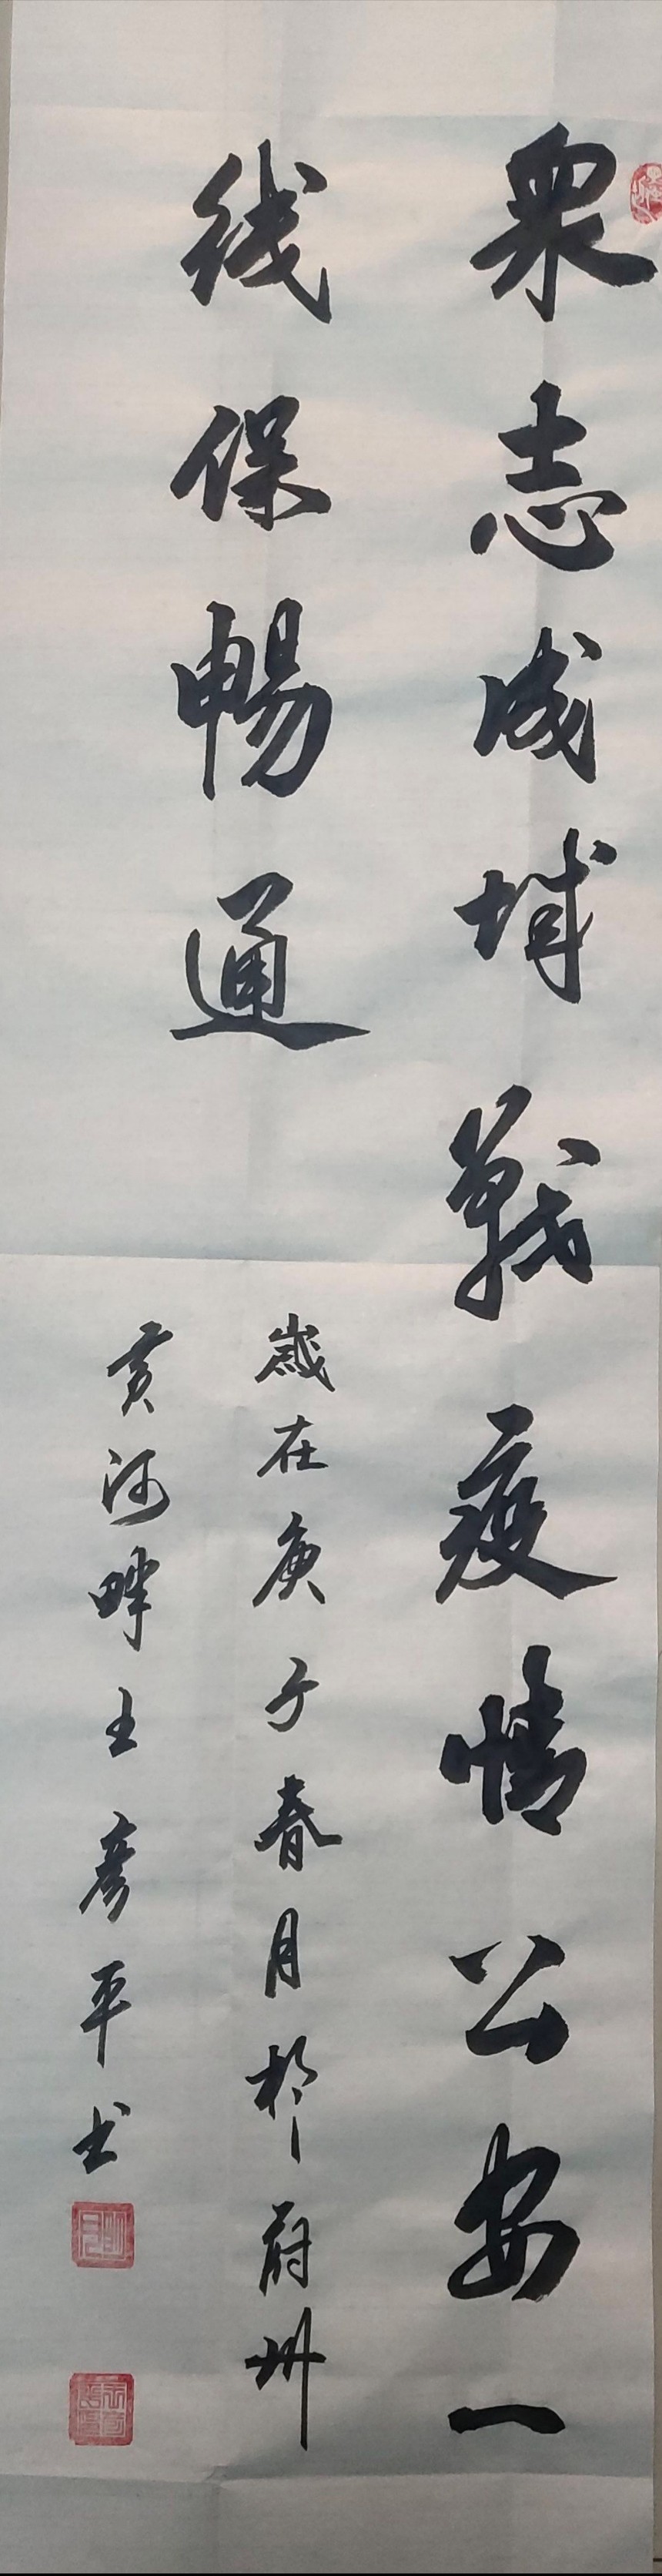 眾志成城戰疫情公安一
线保暢通
歲在庚子春月於府州
黄河畔王彦平书